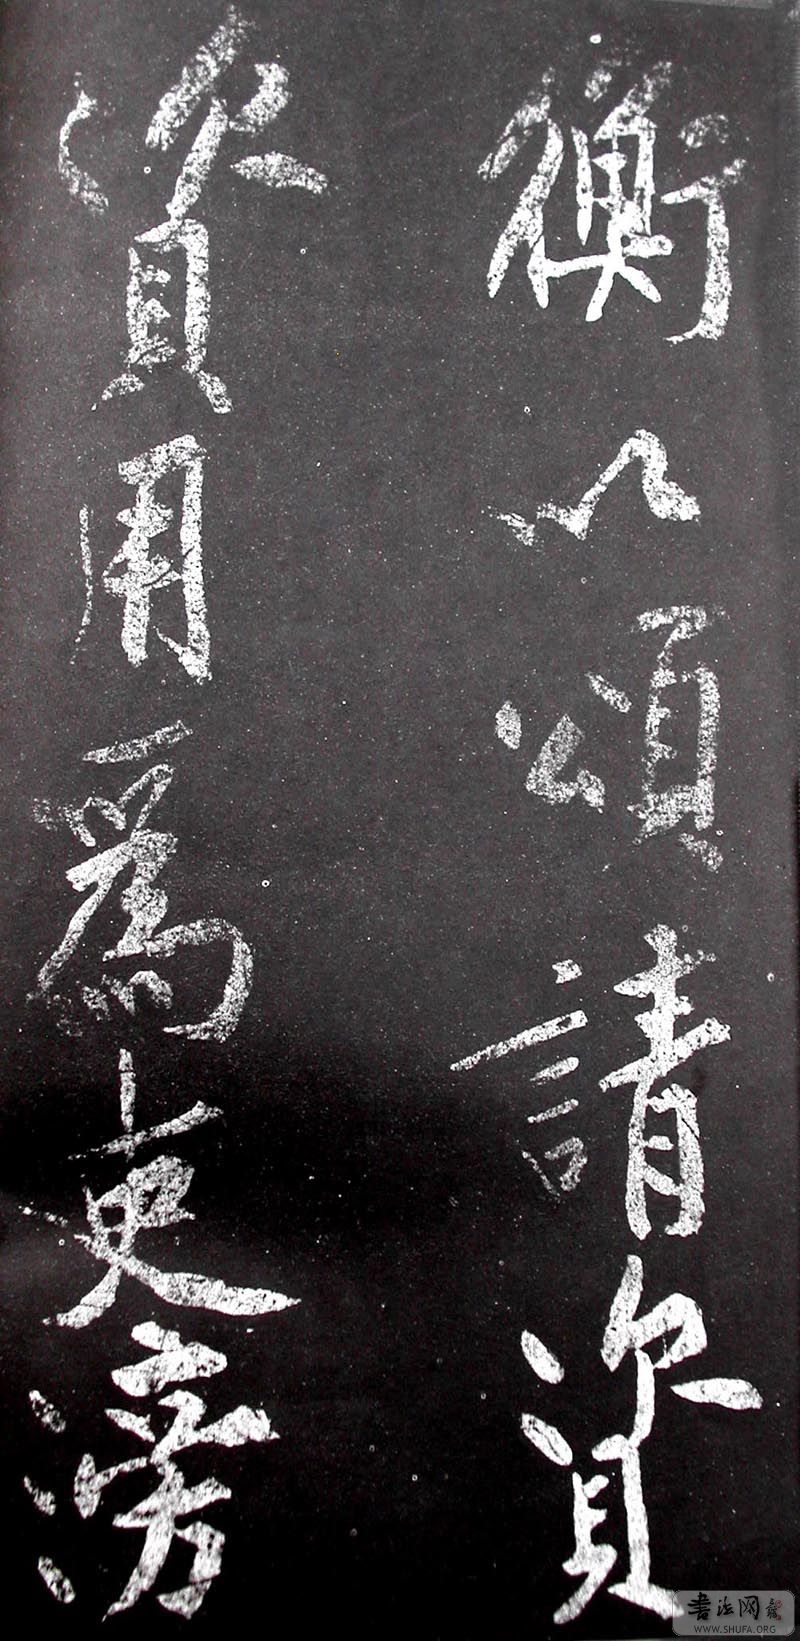 衡以頌請資
資用爲吏滂
書法网
WWW.SHUFA.ORG